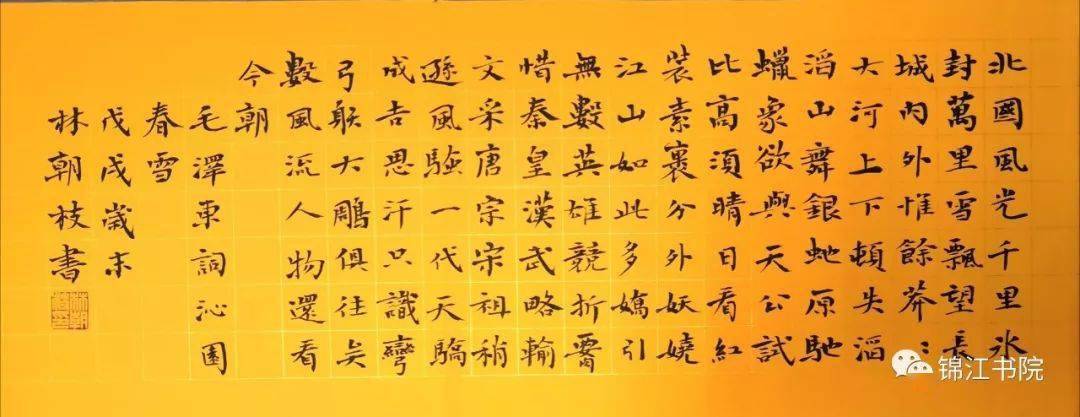 北國風光千里冰
封萬里雪飄望長
城內外惟餘莽〻
大河上下頓失滔
滔山舞銀虵原馳
蠟象欲與天公試
比高須晴日看紅
裝素裹分外妖嬈
江山如此多嬌引
無數英雄競折腰
惜秦皇漢武略輸
文采唐宗宋祖稍
遜風騷一代天驕
成吉思汗只識彎
弓射大雕俱往矣
數風流人物還看
今朝
毛澤東詞沁園
春雪
戊戌歲末
林朝枝書
锦江书院